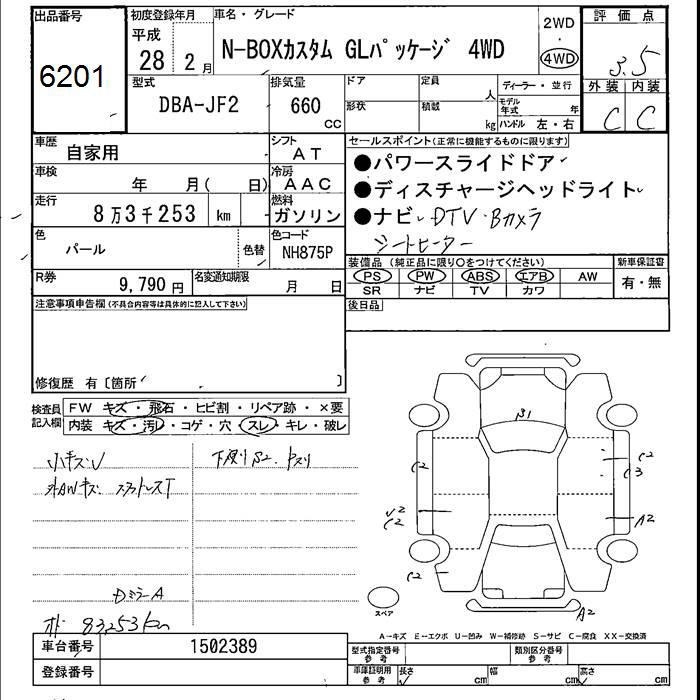 出品番号
6201
初度登録年月
平成
28 2月
車名・グレード
N-BOXカスタム GLパッケージ 4WD
2WD
・
4WD
評価点
3.5
外装 内装
C C
型式
DBA-JF2
排気量
660
CC
ドア
形状
定員
人
積載
kg
ディーラー・並行
モデル年式 年
ハンドル 左・右
車歴
自家用
シフト
AT
車検
年 月( 日)
冷房
AAC
走行
8万3千253 km
燃料
ガソリン
色
パール
色替
色コード
NH875P
R券
9,790円
名変通知期限
月 日
セールスポイント(正常に機能するものに限ります)
●パワースライドドア
●ディスチャージヘッドライト
●ナビ DTV・Bカメラ
シートヒーター
装備品(純正品に限り○をつけてください)
PS PW ABS エアB AW
SR ナビ TV カワ
新車保証書
有・無
注意事項申告欄(不具合内容等は具体的に記入して下さい)
後日品
修復歴 有〔箇所 〕
検査員記入欄
FW キズ・飛石・ヒビ割・リペア跡・×要
内装 キズ・汚レ・コゲ・穴・スレ・キレ・破レ
小キズレ
外AWキズ スタットレスT
下廻りS2.
DミラーA
83253km
B1
C2
C2
C3
V2
C2
A2
C2
A2
スペア
A-キズ E-エクボ U-凹み W-補修跡 S-サビ C-腐食 XX-交換済
車台番号 1502389
登録番号
型式指定番号
参考
類別区分番号
参考
車庫証明用
参考
長さ cm 幅 cm 高さ cm